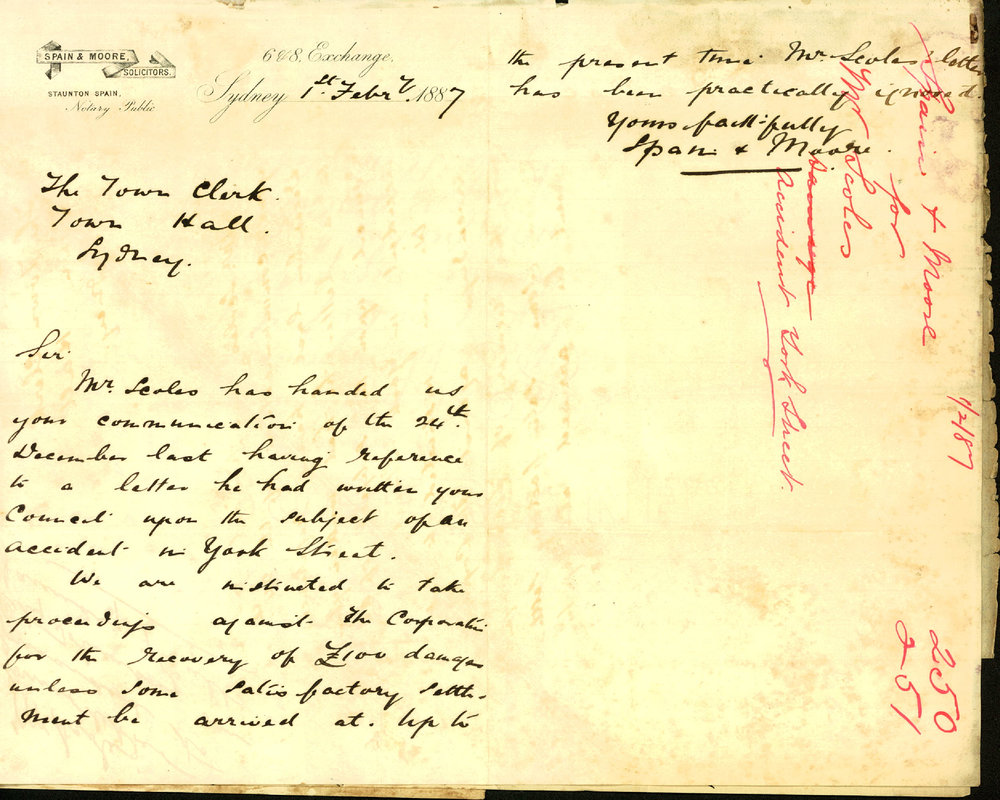 SPAIN & MOORE,
SOLICITORS.
STAUNTON SPAIN,
Notary Public
6 & 8, Exchange,
Sydney 1st Febry. 1887
The Town Clerk.
Town Hall.
Sydney.
Sir
Mr. Scoles has handed us
your communication of the 24th.
December last having reference
to a letter he had written your
Council upon the subject of an
accident in York Street.
We are instructed to take
proceedings against The Corporation
for the recovery of £100 damages
unless some satisfactory settle-
ment be arrived at. Up to
the present time Mr. Scoles' letter
has been practically ignored.
Yours faithfully
Spain & Moore.
Spain & Moore
for
Mr Scoles
Damage
Accident York Street.
1/2/87
250
251